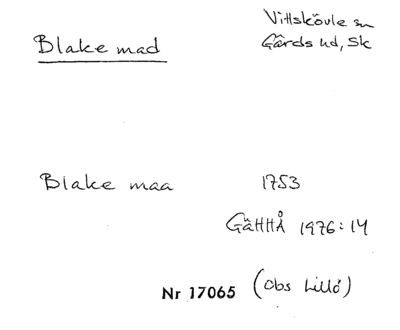 Blake mad
Vittskövle sn
Gärds hd, Sk
Blake maa 1753
GäHHÅ 1976:14
Nr 17065 (Obs Lillö)